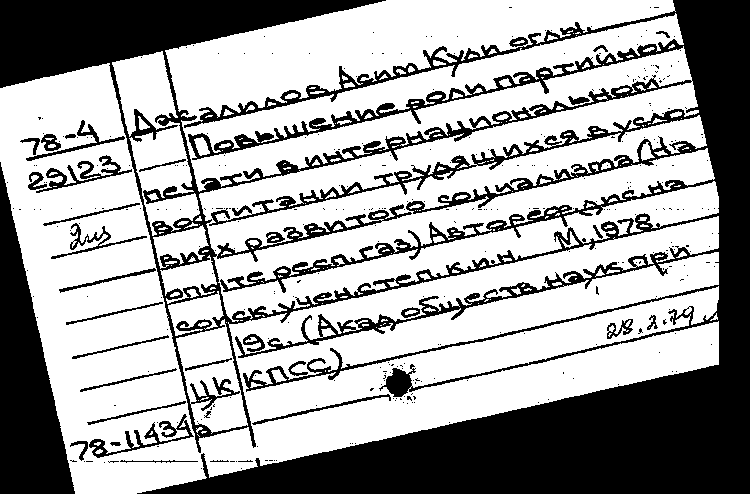 78-4 Джалилов, Асим Кули оглы.
29123 Повышение роли партийной
печати в интернациональном
2из воспитании трудящихся в усло-
виях развитого социализма (На
опыте респ. газ) Автореф. дис. на
соиск. учен. степ. к.и.н. М., 1978.
19с. (Акад. обществ. наук при
ЦК КПСС). 28.2.79
78-11434а